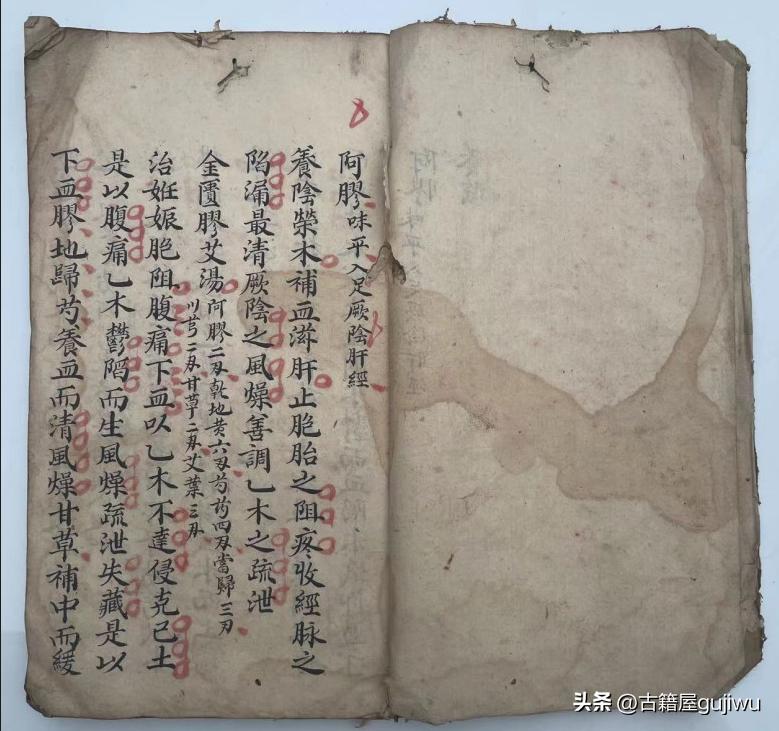 8
阿膠味平入足厥陰肝經
養陰榮木補血滋肝止胞胎之阻疼收經脉之
陷漏最清厥陰之風燥善調乙木之疏泄
金匱膠艾湯阿膠二刄乾地黄六刄芍药四刄當歸三刄
川芎二刄甘草二刄艾葉三刄
治妊娠胞阻腹痛下血以乙木不達侵克己土
是以腹痛乙木鬱陷而生風燥疏泄失藏是以
下血膠地歸芍養血而清風燥甘草補中而緩
头条 @古籍屋gujiwu